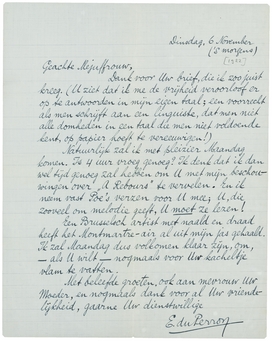 Dinsdag, 6 November
('s morgens)
Geachte Mejuffrouw,
Dank voor Uw brief, die ik zoo juist
kreeg. (U ziet dat ik me de vrijheid veroorloof er
op te antwoorden in mijn eigen taal; een voorrecht
als men schrijft aan een linguiste, dat men niet
alle domheden in een taal die men niet voldoende
kent, op papier hoeft te vereeuwigen!)
Natuurlijk zal ik met plezier Maandag
komen. Is 4 uur vroeg genoeg? Ik denk dat ik dan
wel tijd genoeg zal hebben om U met mijn beschou-
wingen over "A Rebours" te vervelen. En ik
neem vast Poe's verzen voor U mee; U, die
zooveel om melodie geeft, U moet ze lezen!
Een Brusselsch artist met naald en draad
heeft het Montmartre-air al uit mijn jas gehaald.
Ik zal Maandag dus volkomen klaar zijn, om,
— als U wilt — nogmaals voor Uw kacheltje
vlam te vatten.
Met beleefde groeten, ook aan mevrouw Uw
Moeder, en nogmaals dank voor al Uw vriende-
lijkheid, gaarne Uw dienstwillige
E. du Perron